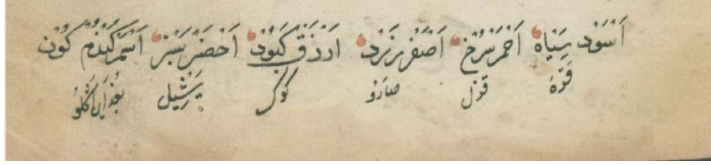 اَسْوَد سِيَاهْ اَحْمَرْ سُرْخْ اَصْفَرْ زَرْدْ اَزْرَقْ كَبُودْ اَخْضَرْ سَبْز اَسْمَرْ كَنْدُمْ كُونْ
قَرَه قزل صارو كوك يَشِيل بُغْدَاى اَكْلُو